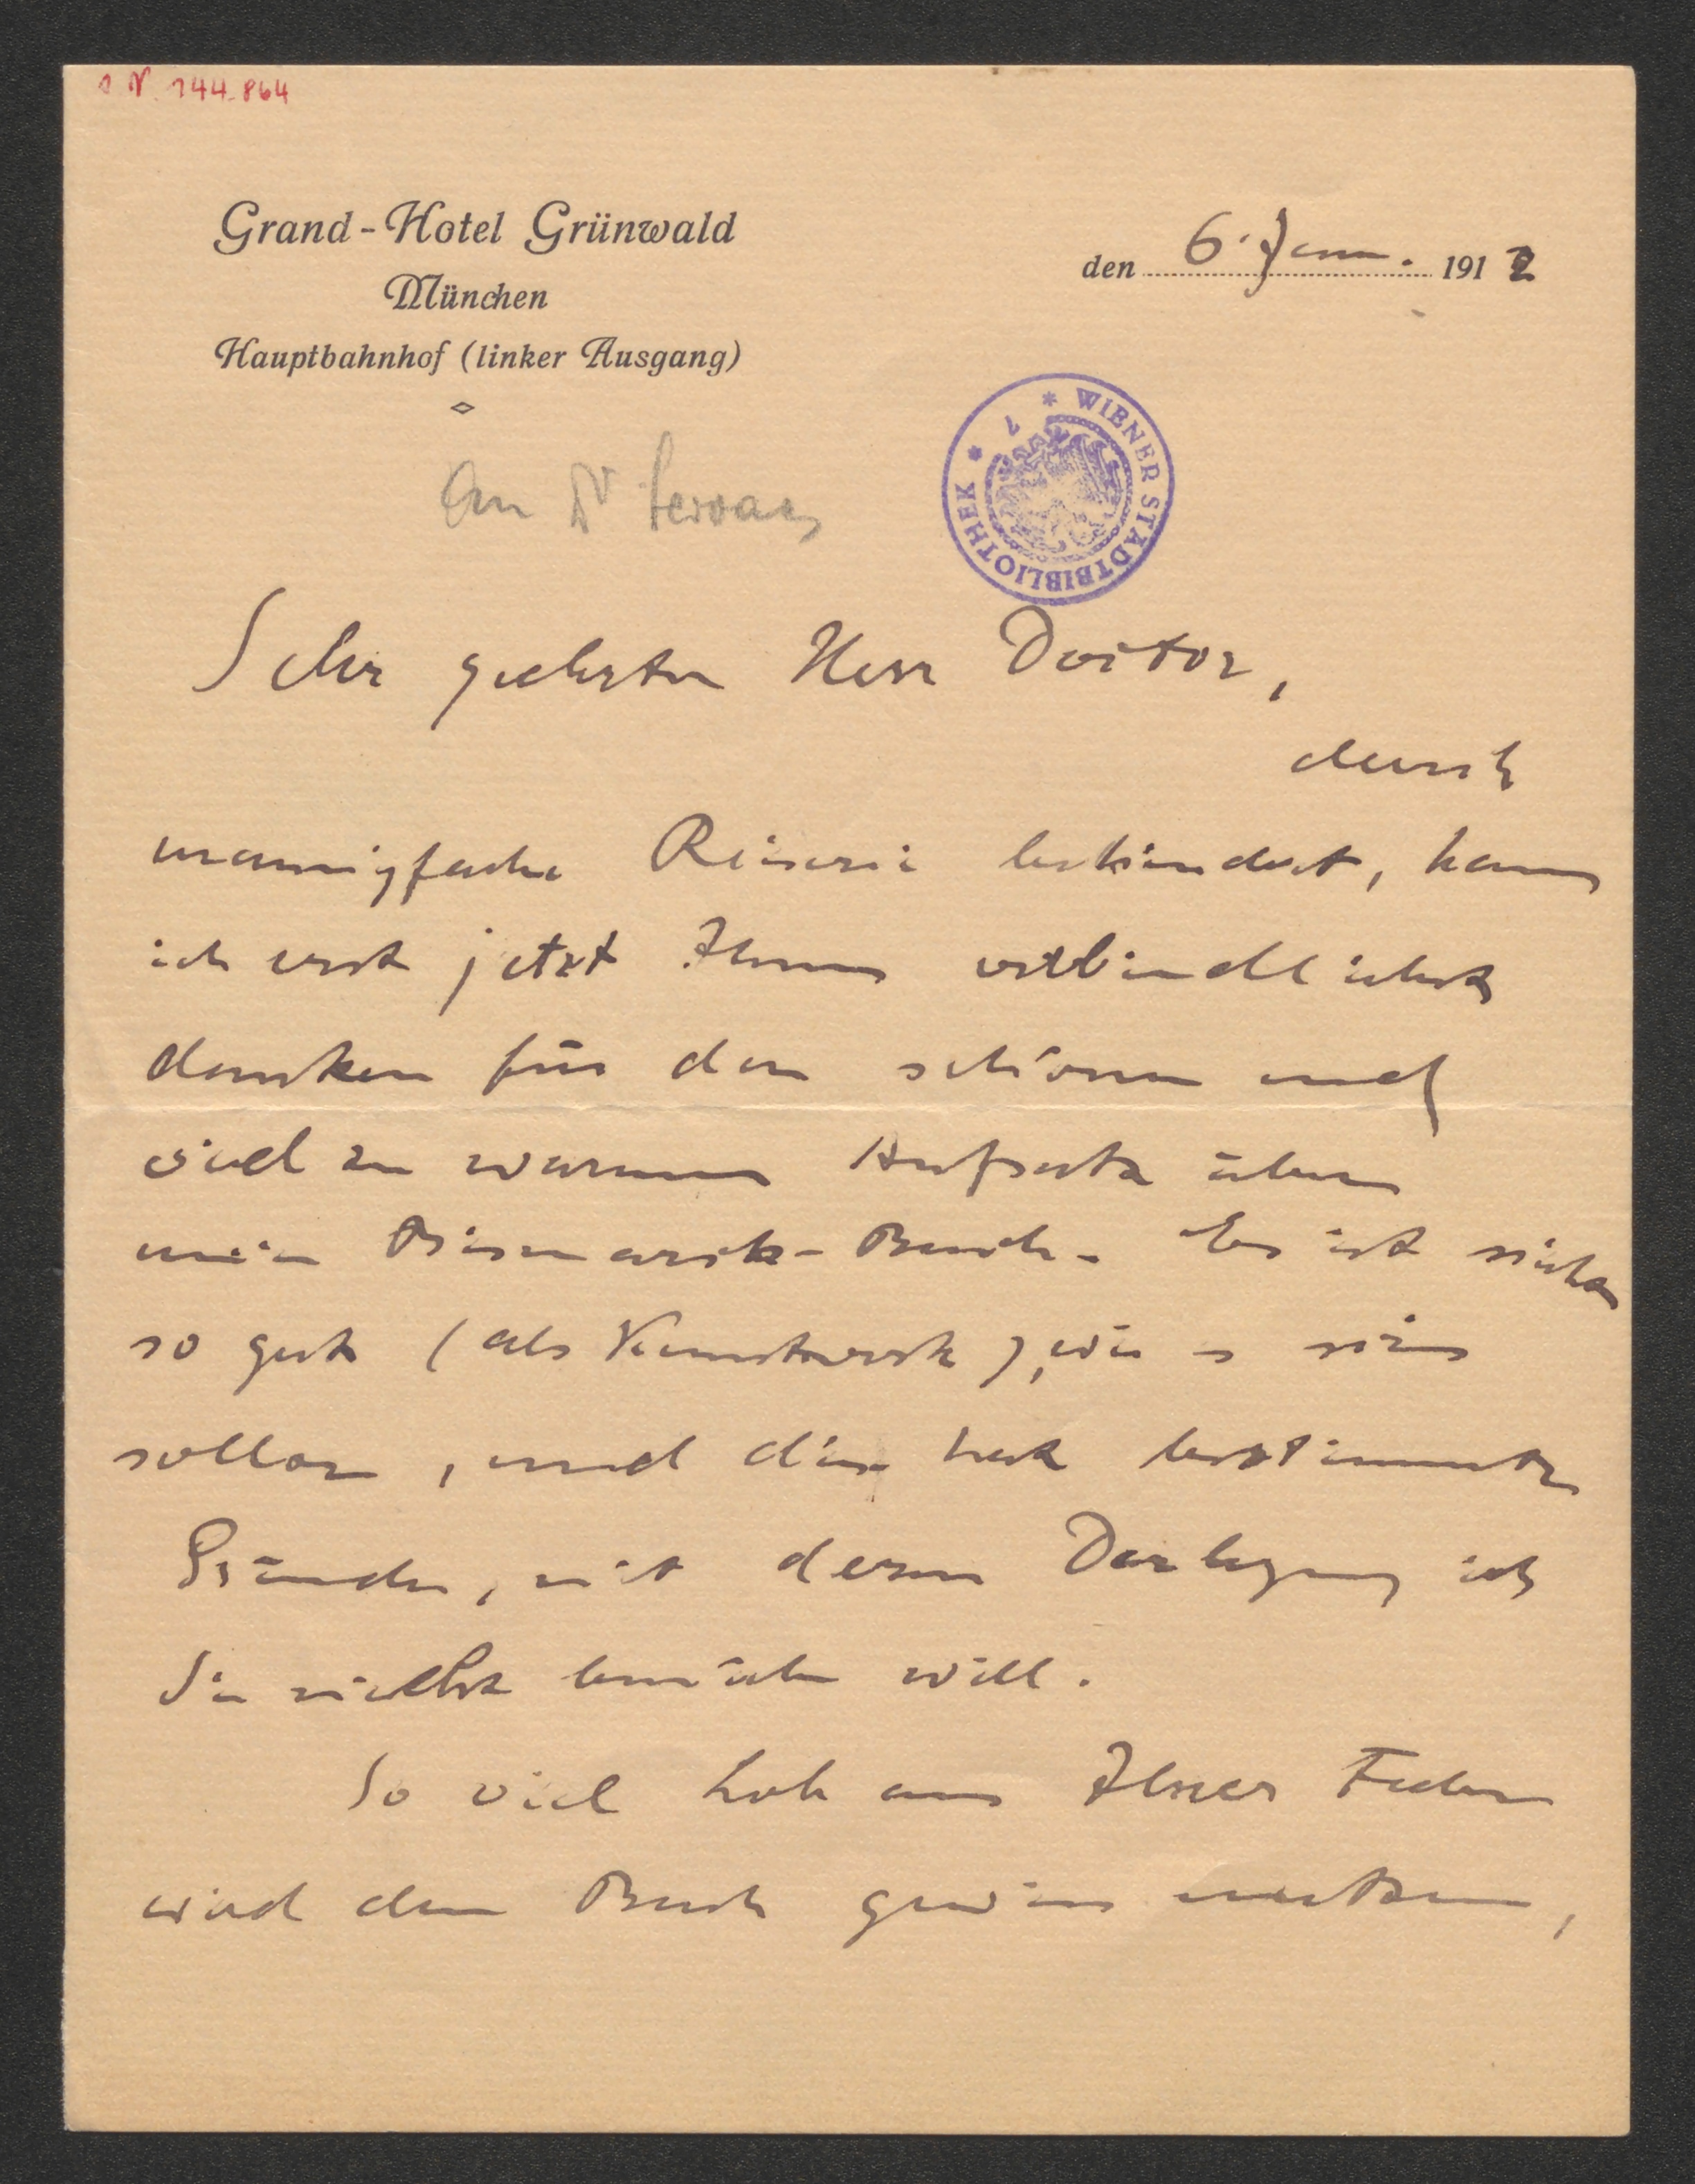 I N. 144.864
Grand-Hotel Grünwald
München
Hauptbahnhof (linker Ausgang)
den 6. Jan. 1912
An Dr Servaes
* WIENER STADTBIBLIOTHEK *
Sehr geehrter Herr Doctor,
durch
mannigfache Reiserei behindert, kann
ich erst jetzt Ihnen verbindlichst
danken für den schönen und
viel zu warmen Aufsatz über
mein Bismarck-Buch. Es ist nicht
so gut (als Kunstwerk), wie es sein
sollte, und dies hat bestimmte
Gründe, mit deren Darlegung ich
Sie nicht bemühen will.
So viel Lob aus Ihrer Feder
wird dem Buch gewiss nutzen,